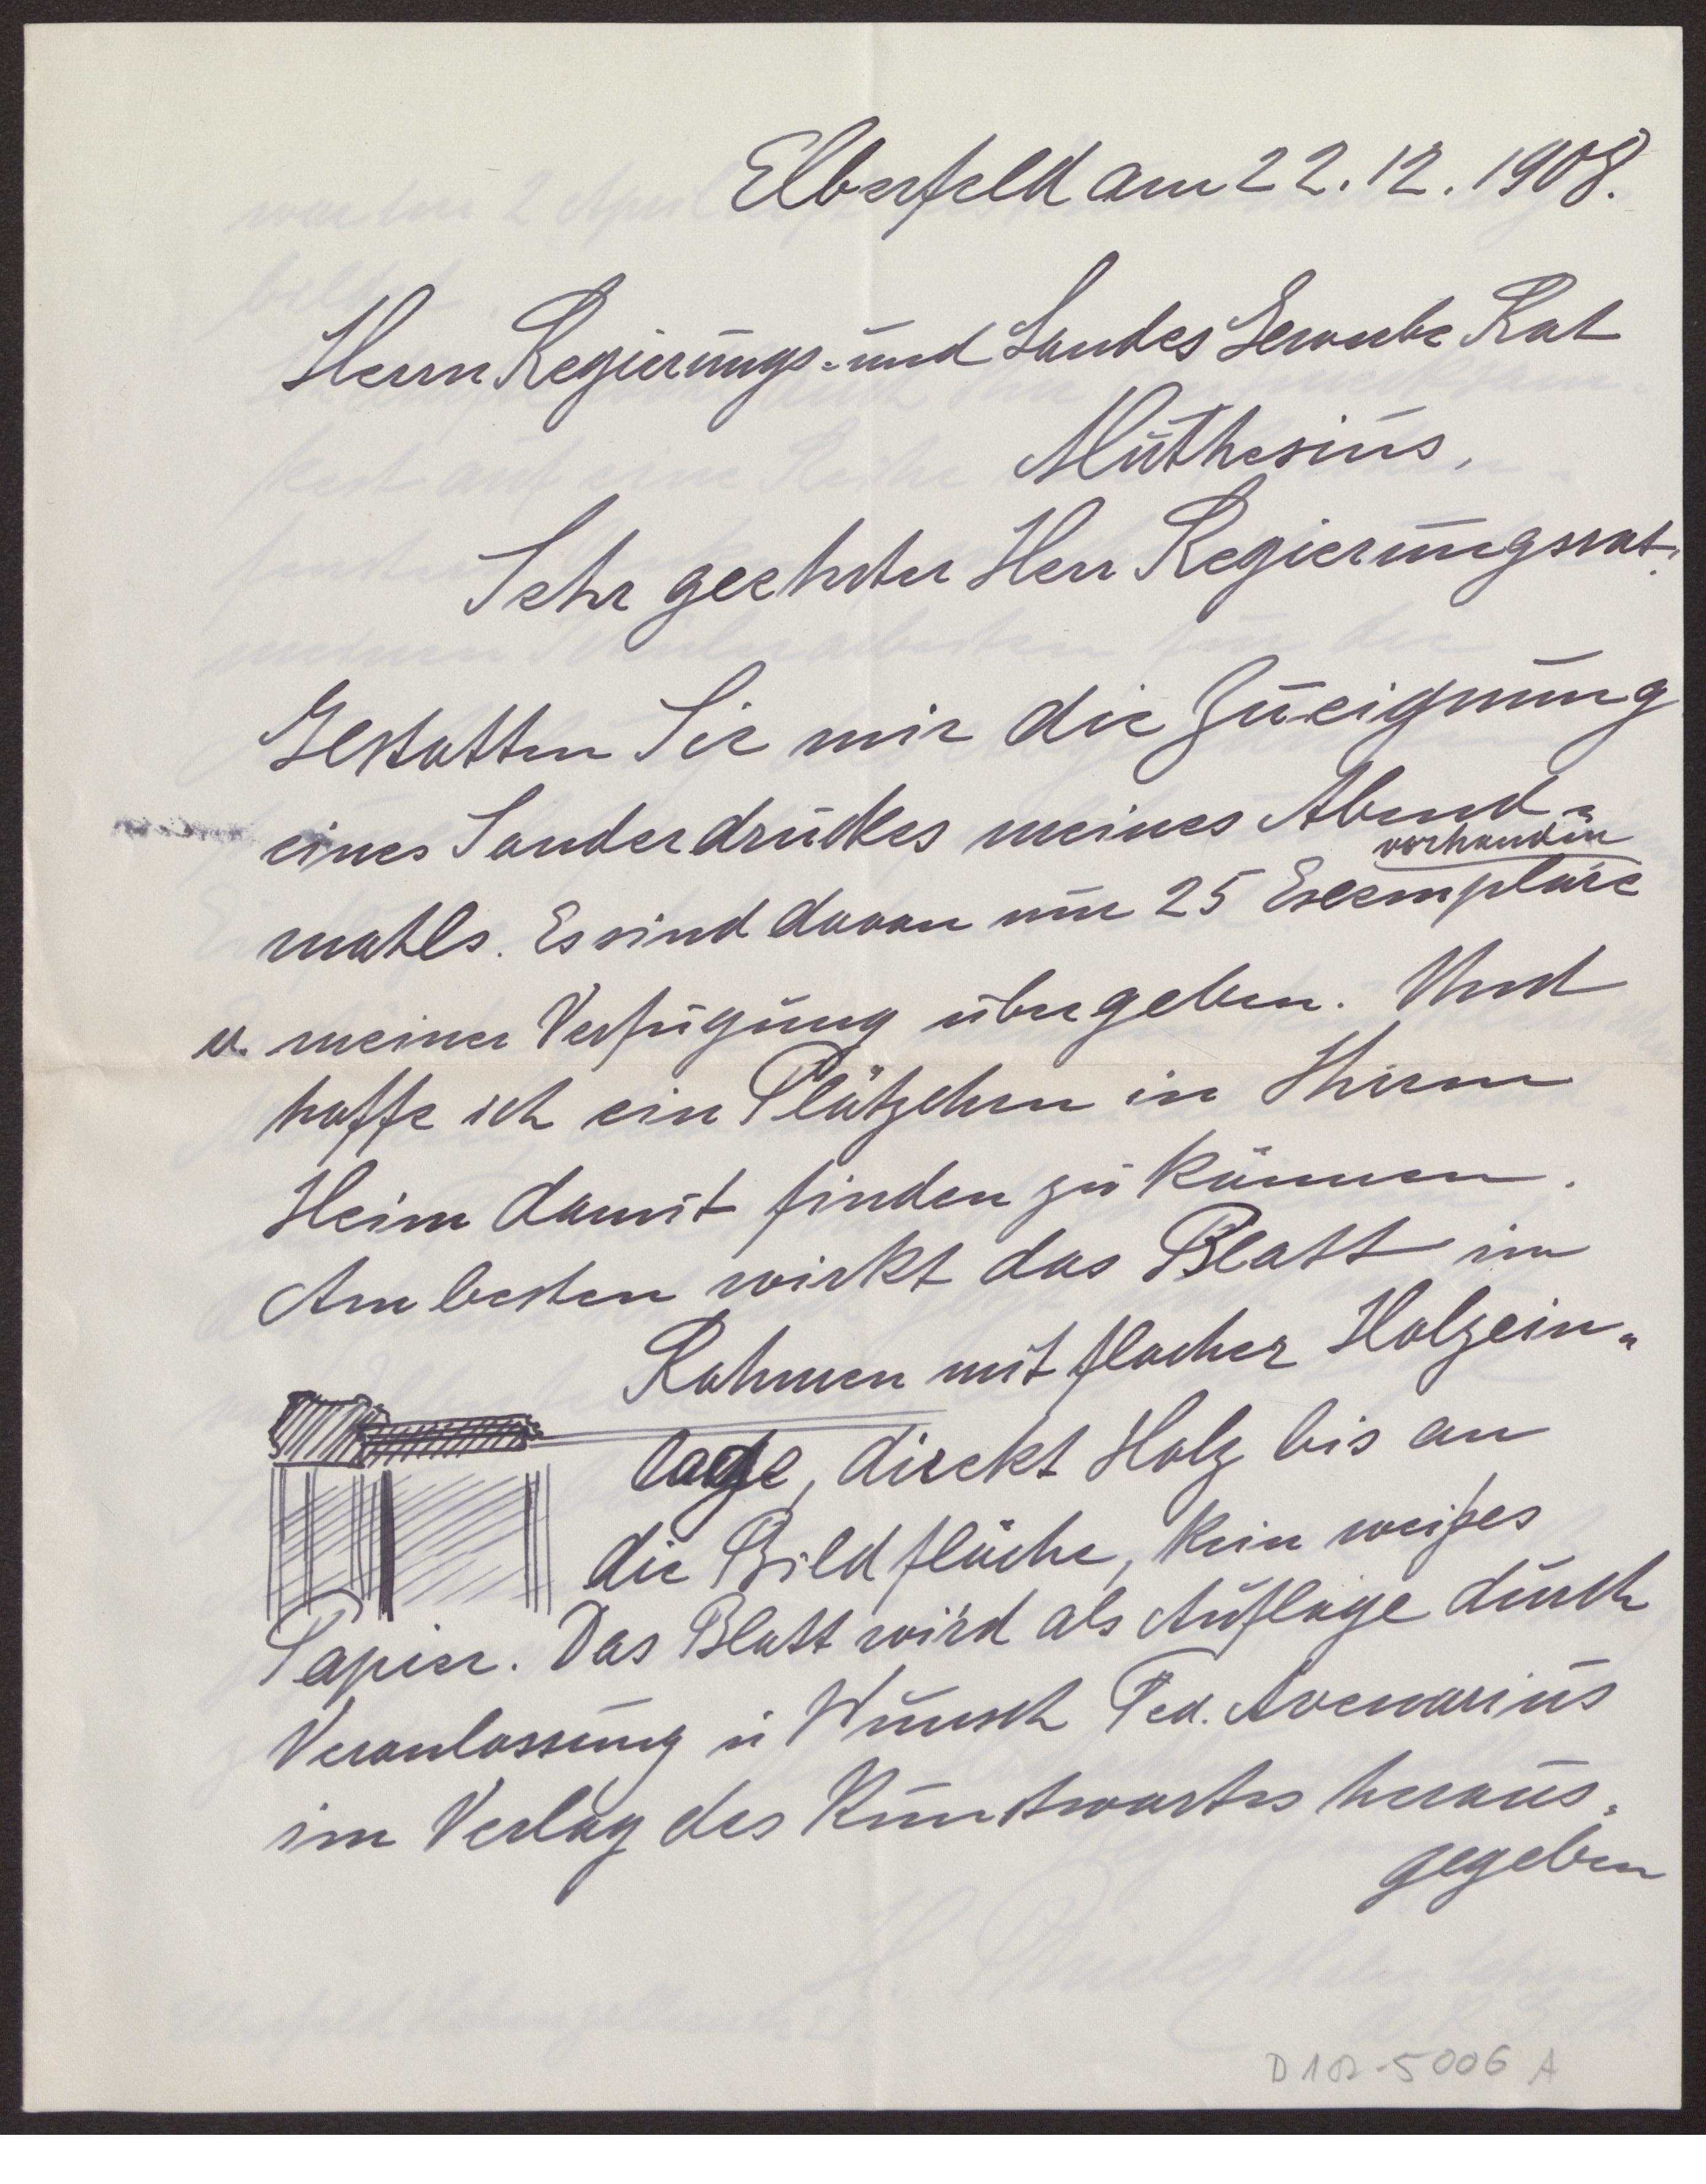 Elberfeld am 22.12.1908.
Herrn Regierungs- und Landes Gewerbe Rat
Muthesius,
Sehr geehrter Herr Regierungsrat!
Gestatten Sie mir die Zueignung
eines Sonderdruckes meines Abend-
vorhanden
mahls. Es sind davon nur 25 Exemplare
u. meiner Verfügung übergeben. Und
hoffe ich ein Plätzchen in Ihrem
Heim damit finden zu können.
Am besten wirkt das Blatt im
Rahmen mit flacher Holzein-
lage, direkt Holz bis an
die Bildfläche, kein weißes
Papier. Das Blatt wird als Auflage durch
Veranlassung u Wunsch Fed. Avenarius
im Verlag des Kunstwartes heraus-
gegeben
D 102-5006 A